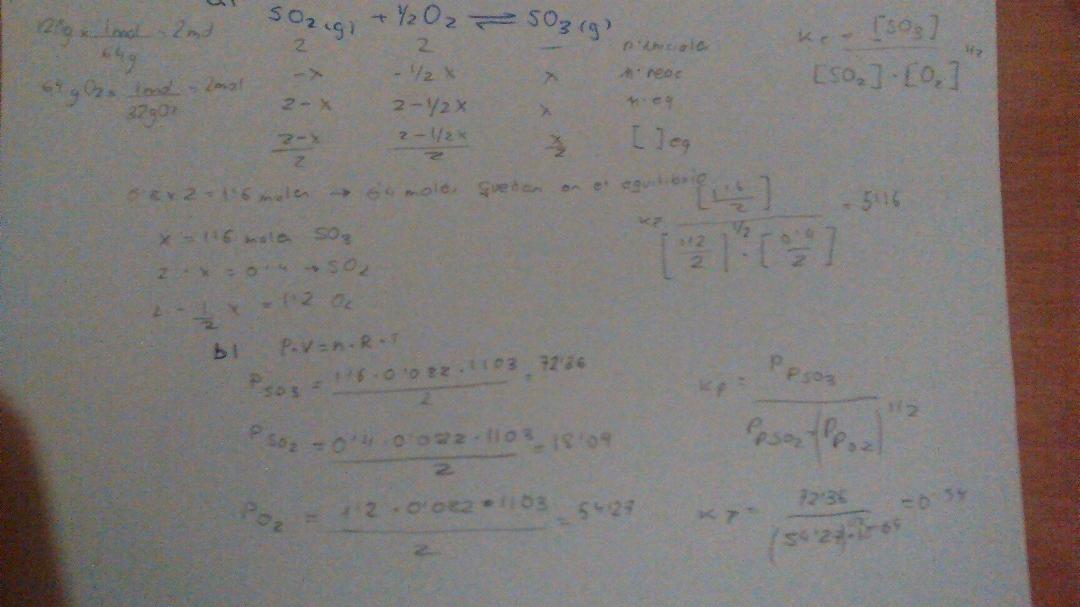 a.
SO2(g) + 1/2 O2 ⇌ SO3(g)
128g x 1mol/64g = 2mol
64gO2 x 1mol/32gO2 = 2mol
2 2 — n. iniciales
-x -1/2x x n. reac
2-x 2-1/2x x n. eq
2-x/2 2-1/2x/2 x/2 [ ]eq
Kc = [SO3]/[SO2]·[O2]^1/2
0'8 x 2 = 1'6 moles → 0'4 moles quedan en el equilibrio
x = 1'6 moles SO3
2-x = 0'4 → SO2
2 - 1/2 x = 1'2 O2
[1'6/2]/[1'2/2]^1/2·[0'4/2] = 5'16
b) P·V=n·R·T
P SO3 = 1'6·0'082·1103/2 = 72'36
P SO2 = 0'4·0'082·1103/2 = 18'09
P O2 = 1'2·0'082·1103/2 = 54'27
Kp = P PSO3/P PSO2·(P PO2)^1/2
Kp = 72'36 = 0'54